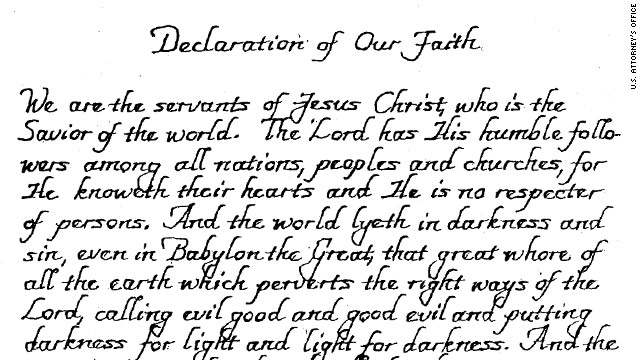 Declaration of Our Faith
We are the servants of Jesus Christ, who is the
Savior of the world. The Lord has His humble follo-
wers among all nations, peoples and churches, for
He knoweth their hearts and He is no respecter
of persons. And the world lyeth in darkness and
sin, even in Babylon the Great, that great whore of
all the earth which perverts the right ways of the
Lord, calling evil good and good evil and putting
darkness for light and light for darkness. And the
U.S. ATTORNEY'S OFFICE